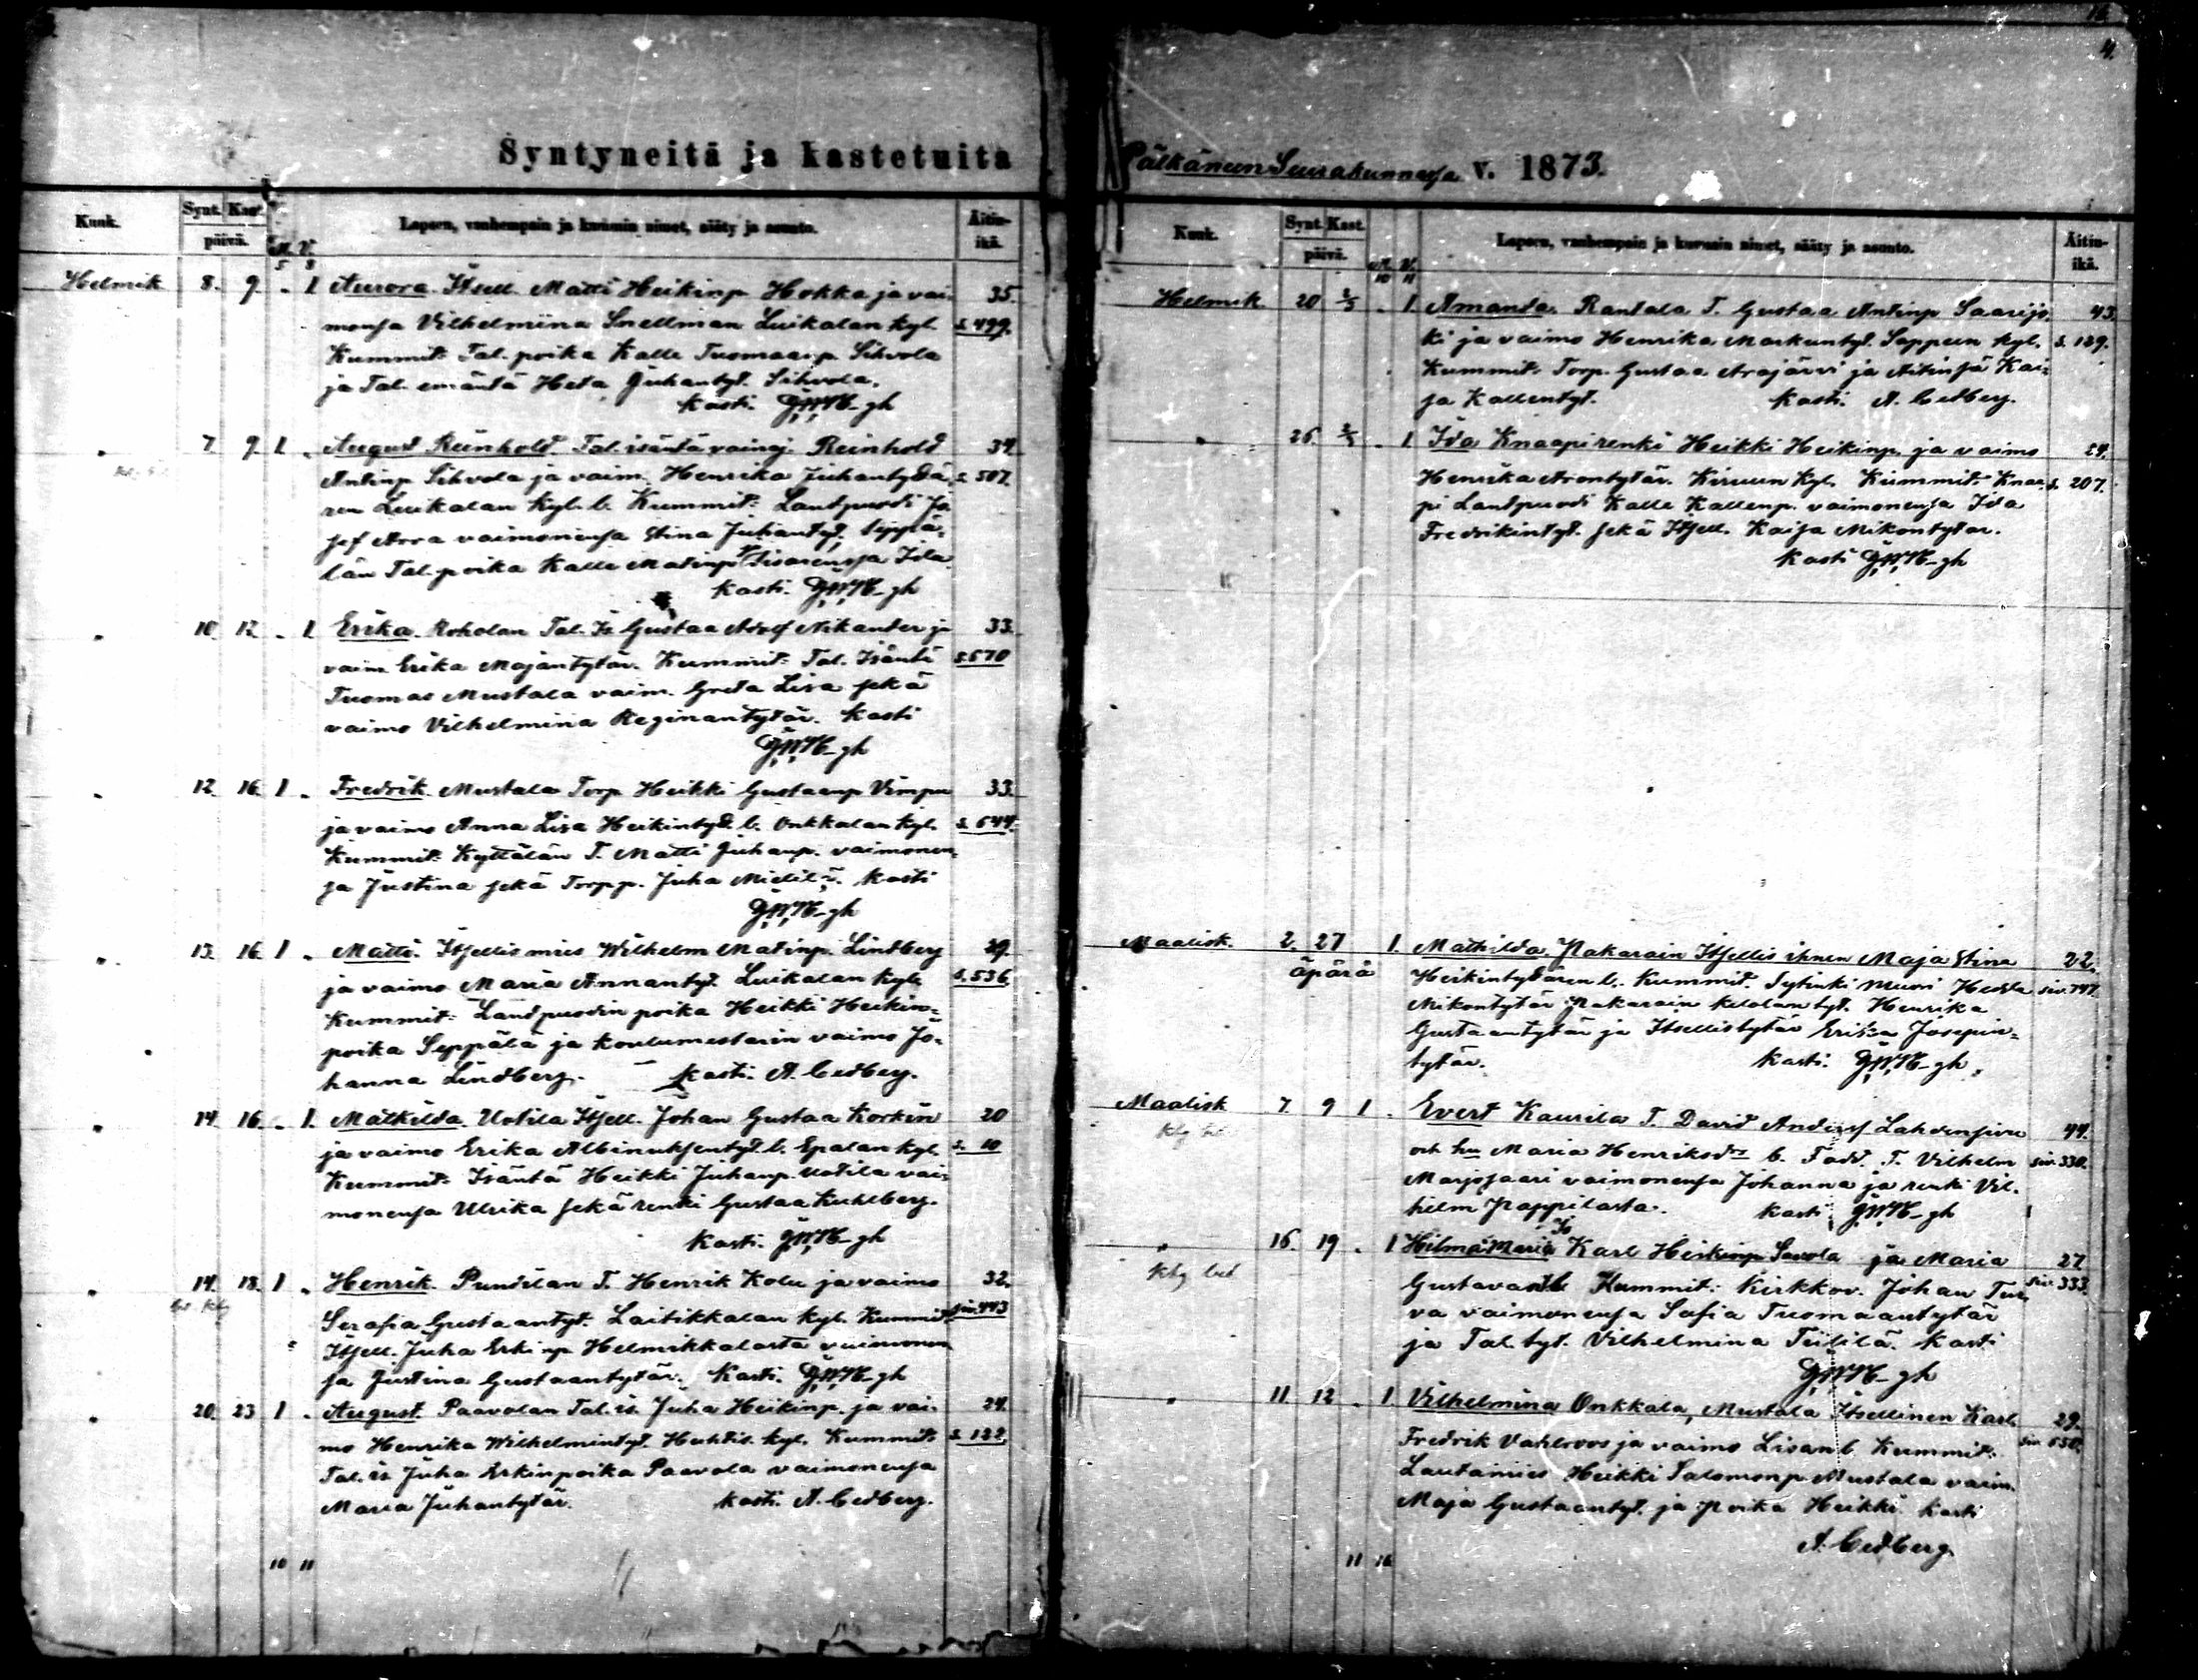 Syntyneitä ja kastetuita
Kuuk. Synt. Kast. päivä. M. V. Lapsen, vanhempain ja kummin nimet, sääty ja asunto. Äitin-ikä.
5 8
Helmik 8. 9. . 1 Aurora. Itsell. Matti Heikinp. Hokka ja vai- 35.
monsa Vilhelmiina Snellman Luikalan kyl. s. 499.
Kummit: Tal. poika Kalle Tuomaanp. Sihvola
ja Tal. emäntä Heta Juhantyt. Sihvola.
Kasti. G.W.H-gh
" 7 9. 1 . August Reinhold. Tal. isäntä vainaj. Reinhold 34
Antinp. Sihvola ja vaim. Henrika Juhantytä- s. 507.
ren Luikalan kyl. b. Kummit: Lautpuodi Jo
sef Arra vaimonensa Stina Juhantyt. Seppä-
län Tal. poika Kalle Matinp. Sisarensa Ida
Kasti. G.W.H-gh
" 10. 12. . 1. Erika. Roholan Tal. Is. Gustaa Adolf Nikander ja 33.
vaim. Erika Majantytär. Kummit: Tal. Isäntä s. 570
Tuomas Mustala vaim. Greta Lisa sekä
vaimo Vilhelmina Reginantytär. Kasti
G.W.H-gh
" 12. 16. 1 . Fredrik. Mustala Torp. Heikki Gustaanp. Vimpu 33.
ja vaimo Anna Lisa Heikintyt. b. Onkkalan kyl. s. 644.
Kummit: Kyttälän T. Matti Juhanp. vaimonen-
sa Justina sekä Torpp. Juha Mielilä. Kasti
G.W.H-gh
" 13. 16. 1 . Matti. Itsellis mies Wilhelm Matinp. Lindberg 29.
ja vaimo Maria Annantyt. Luikalan kyl. s. 536.
Kummit: Lautpuodin poika Heikki Heikin-
poika Seppälä ja koulumestarin vaimo Jo-
hanna Lindberg. Kasti. A. Cedberg.
" 14. 16. . 1. Mathilda. Uotila Itsell. Johan Gustaa Korkin 20
ja vaimo Erika Albinuksentyt. b. Epalan kyl. s. 10
Kummit: Isäntä Heikki Juhanp. Uotila vai-
monensa Ulrika sekä renki Gustaa Kuhlberg.
Kasti. G.W.H-gh
" 14. 18. 1 . Henrik. Punnilan T. Henrik Kolu ja vaimo 32.
Serafia Gustaantyt. Laitikkalan kyl. Kummit: siv. 443
Itsell. Juha Erkinp. Helmikkalasta vaimonen
sa Justina Gustaantytär. Kasti. G.W.H-gh
" 20. 23 1 . August. Paavolan Tal. is. Juha Heikinp. ja vai- 24.
mo Henrika Wilhelmintyt. Huhtis. kyl. Kummit: s. 122.
Tal. is. Juha Erkinpoika Paavola vaimonensa
Maria Juhantytär. Kasti. A. Cedberg.
10 11
4.
Pälkäneen Seurakunnassa v. 1873.
Kuuk. Synt. Kast. päivä. M. V. Lapsen, vanhempain ja kummin nimet, sääty ja asunto. Äitin-ikä.
10 11
Helmik 20 2/3 . 1 Amanda. Rantala T. Gustaa Antinp. Saarijo- 43.
ki ja vaimo Henrika Markuntyt. Sappeen kyl. s. 129.
Kummit: Torp. Gustaa Arajärvi ja Aitinsä Kai-
sa Kallentyt. Kasti. A. Cedberg.
" 26. 2/3 . 1 Ida Knaapi renki Heikki Heikinp. ja vaimo 24.
Henrika Arontytär. Kirvun kyl. Kummit: Knaa- s. 207.
pi Lautpuodi Kalle Kallenp. vaimonensa Ida
Fredrikintyt. sekä Itsell. Kaisa Mikontytär.
Kasti G.W.H-gh
Maalisk. 2. 27 1. Mathilda. Pakarain Itsellis ihnen Maja Stina 22.
äpärä Heikintytären b. Kummit. Sytinki muori Hedda siv. 747.
Mikontytär Pakarain kelolan tyt. Henrika
Gustaantytär ja Itsellistytär Erika Josepin-
tytär. Kasti. G.W.H-gh.
Maalisk 7. 9 1 . Evert Kaurila T. David Andersf Lahdensivu 44.
och hu Maria Henriksdr b. Fadd. T. Vilhelm siv. 330.
Marjosaari vaimonensa Johanna ja renki Vil-
helm Pappilasta. Kasti G.W.H-gh
" 16. 19 . 1 Hilma Maria Is Karl Heikinp. Savola ja Maria 27
Gustavan b Kummit: Kirkkov. Johan Tur siv. 333.
va vaimonensa Sofia Tuomaantytär
ja Tal. tyt. Vilhelmina Teililä. Kasti
G.W.H-gh
" 11 12 . 1 Vilhelmina Onkkala, Mustala Itsellinen Karl 29.
Fredrik Vahlroos ja vaimo Lisan b Kummit: siv. 650.
Lautamies Heikki Salomonp. Mustala vaim.
Maja Gustaantyt. ja poika Heikki. Kasti
A. Cedberg.
11 16